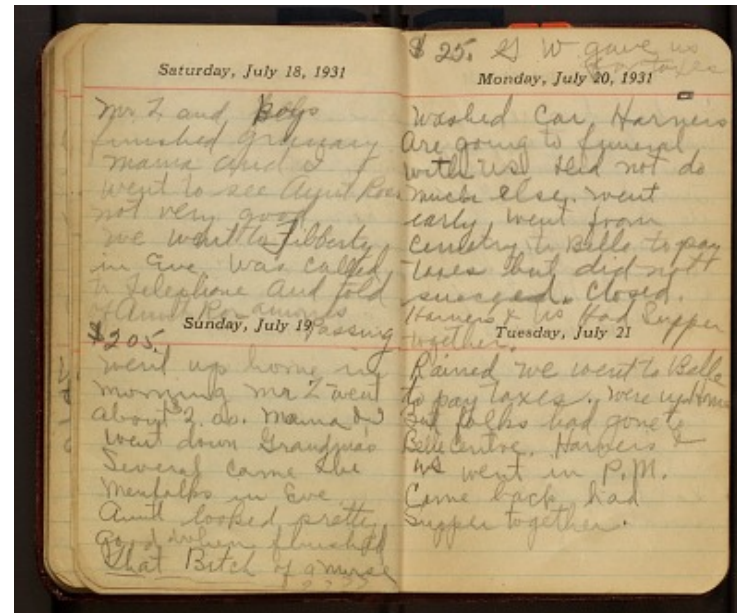 Saturday, July 18, 1931
Mr. Z and Boys
finished Granary
Mama and I
went to see Aunt Rose
not very good
we went to Filberts
in Eve. Was called
to Telephone and told
of Aunt Rosamonds
Passing
Sunday, July 19
$205.
went up home in
morning Mr Z went
about 2. as. Mama & I
went down Grandmas
Several came the
Menfolks in Eve
Aunt looked pretty
good when finished
that Bitch of a nurse
????
$25. G W gave us
for taxes
Monday, July 20, 1931
Washed Car, Harners
are going to funeral
with us did not do
much else. went
early went from
Cemetry to Belle to pay
taxes but did not
succeed. Closed.
Harners & us Had Supper
together.
Tuesday, July 21
Rained we went to Belle
to pay taxes. were up Home
but folks had gone to
Belle Centre. Harners &
us went in P.M.
Came back had
Supper together.